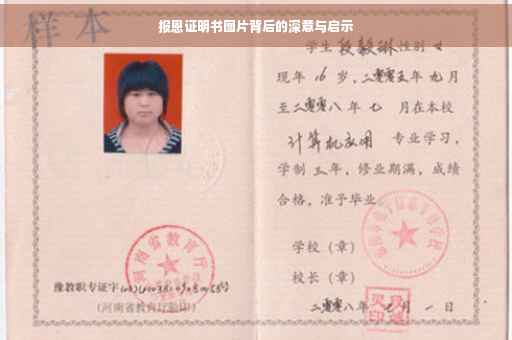 报恩证明书图片背后的深意与启示
样本
学生段毅琳性别女
现年16岁,二零零五年九月
至二零零八年七月在本校
计算机应用 专业学习,
学制三年,修业期满,成绩
合格,准予毕业
学校(章)
校长(章)
二零零八年七月一日
河南省教育厅
豫教职专证字
(河南省教育厅验印)